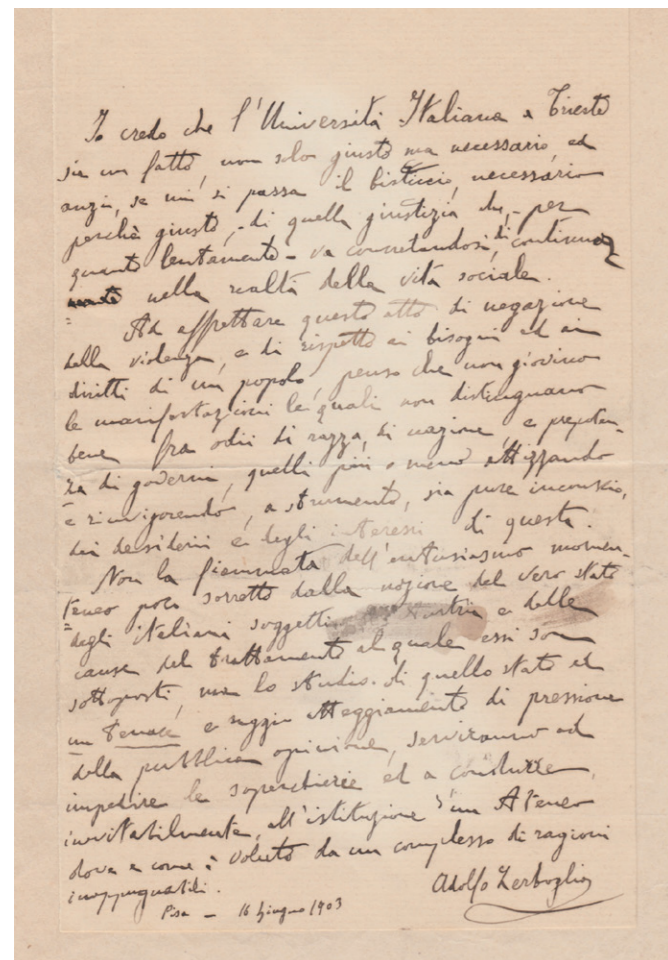 Io credo che l'Università Italiana a Trieste
sia un fatto, non solo giusto ma necessario, ed
anzi, se mi si passa il bisticcio, necessario
perché giusto, - di quella giustizia che, - per
quanto lentamente - va concretandosi, di continuo
nella realtà della vita sociale.
Ad affrettare questo atto di negazione
della violenza, e di rispetto ai bisogni ed ai
diritti di un popolo, penso che non giovino
le manifestazioni le quali non distinguano
bene fra odii di razza, di nazione, e prepoten-
za di governi, quelli più o meno attizzando
e rinvigorendo, a strumento, sia pure inconscio,
dei desiderii e degli interessi di questa.
Non la fiammata dell'entusiasmo momen-
taneo poco sorretto dalla nozione del vero stato
degli italiani soggetti Austria e delle
cause del trattamento al quale essi son
sottoposti, ma lo studio di quello stato ed
un tenace e saggio atteggiamento di pressione
della pubblica opinione, serviranno ad
impedire le soperchierie ed a condurre,
inevitabilmente, all'istituzione d'un Ateneo
dove e come è voluto da un complesso di ragioni
inoppugnabili.
Pisa - 16 Giugno 1903
Adolfo Zerboglio